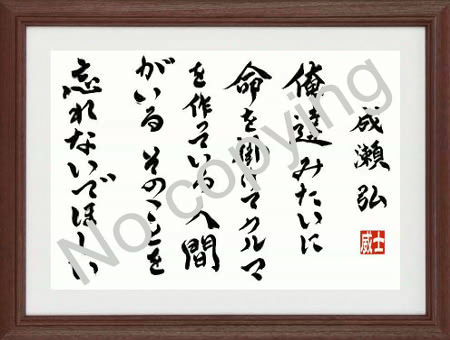 成瀬弘
俺達みたいに
命を掛けてクルマ
を作っている人間
がいる そのことを
忘れないでほしい
威士
No copying